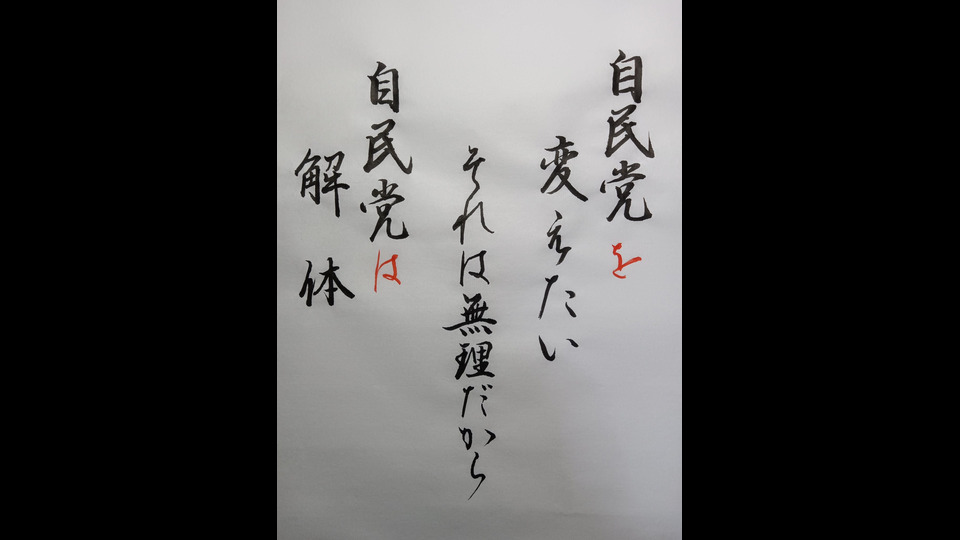 自民党を
変えたい
それは無理だから
自民党は
解体